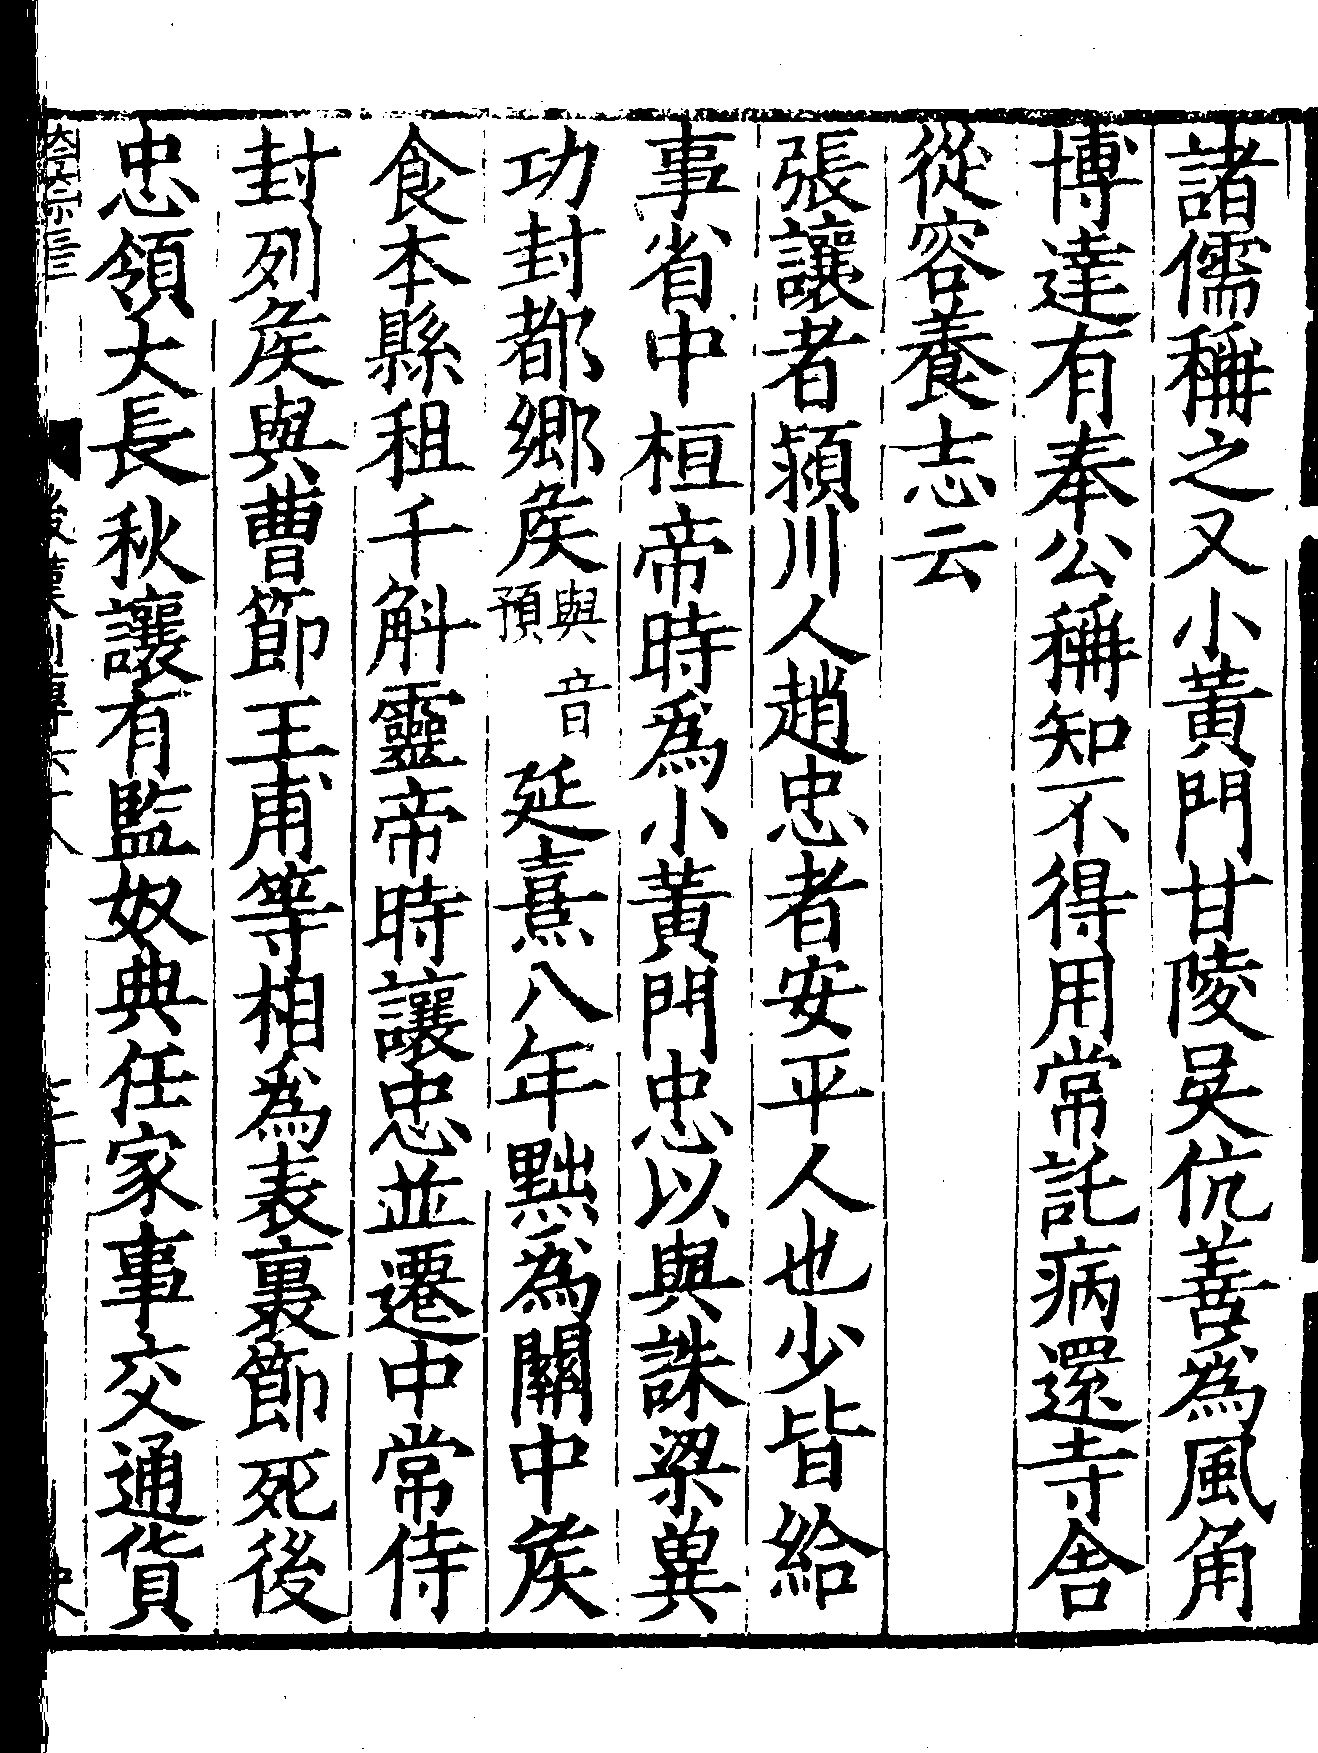 諸儒稱之又小黃門甘陵吳伉善爲風角
博達有奉公稱知不得用常託病還寺舍
從容養志云
張讓者潁川人趙忠者安平人也少皆給
事省中桓帝時爲小黃門忠以與誅梁兾
功封都鄉矦與音預延熹八年黜爲關中矦
食本縣租千斛靈帝時讓忠並遷中常侍
封列矦與曹節王甫等相爲表裏節死後
忠領大長秋讓有監奴典任家事交通貨